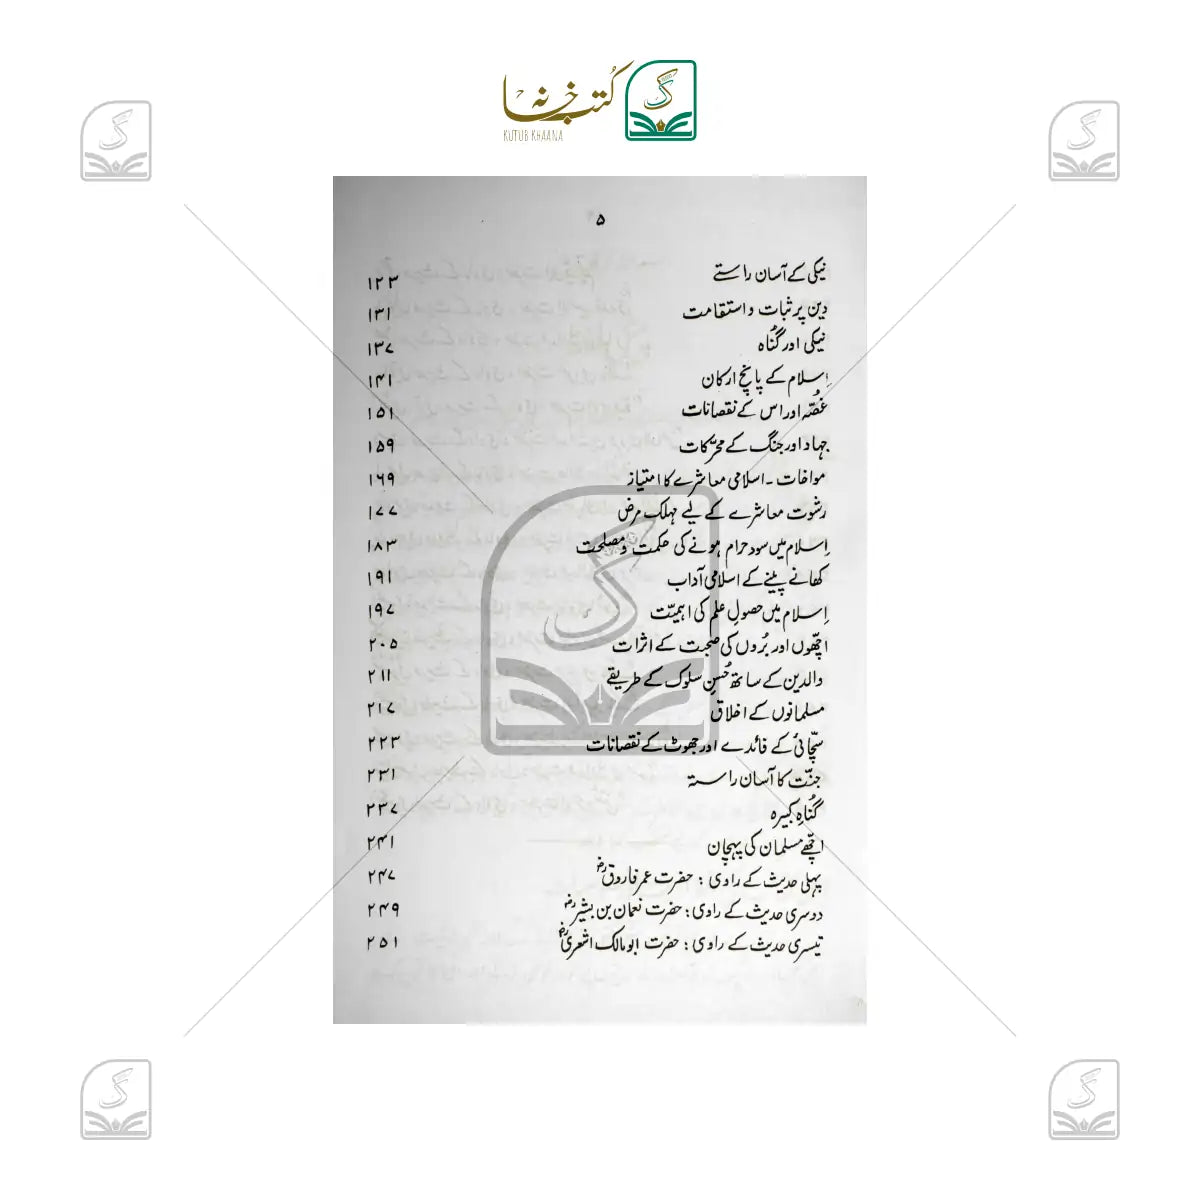 کتب خانہ
KUTUB KHAANA
۵
نیکی کے آسان راستے ۱۲۳
دین پر ثبات و استقامت ۱۳۱
نیکی اور گناہ ۱۳۷
اسلام کے پانچ ارکان ۱۴۱
غصّہ اور اس کے نقصانات ۱۵۱
جہاد اور جنگ کے محرّکات ۱۵۹
مواخات ۔ اسلامی معاشرے کا امتیاز ۱۶۹
رشوت معاشرے کے لیے مہلک مرض ۱۷۷
اسلام میں سود حرام ہونے کی حکمت و مصلحت ۱۸۳
کھانے پینے کے اسلامی آداب ۱۹۱
اسلام میں حصولِ علم کی اہمیّت ۱۹۷
اچھّوں اور بُروں کی صحبت کے اثرات ۲۰۵
والدین کے ساتھ حُسنِ سلوک کے طریقے ۲۱۱
مسلمانوں کے اخلاق ۲۱۷
سچّائی کے فائدے اور جھوٹ کے نقصانات ۲۲۳
جنّت کا آسان راستہ ۲۳۱
گناہِ کبیرہ ۲۳۷
اچھّے مسلمان کی پہچان ۲۴۱
پہلی حدیث کے راوی : حضرت عمر فاروقؓ ۲۴۷
دوسری حدیث کے راوی : حضرت نعمان بن بشیرؓ ۲۴۹
تیسری حدیث کے راوی : حضرت ابو مالک اشعریؓ ۲۵۱